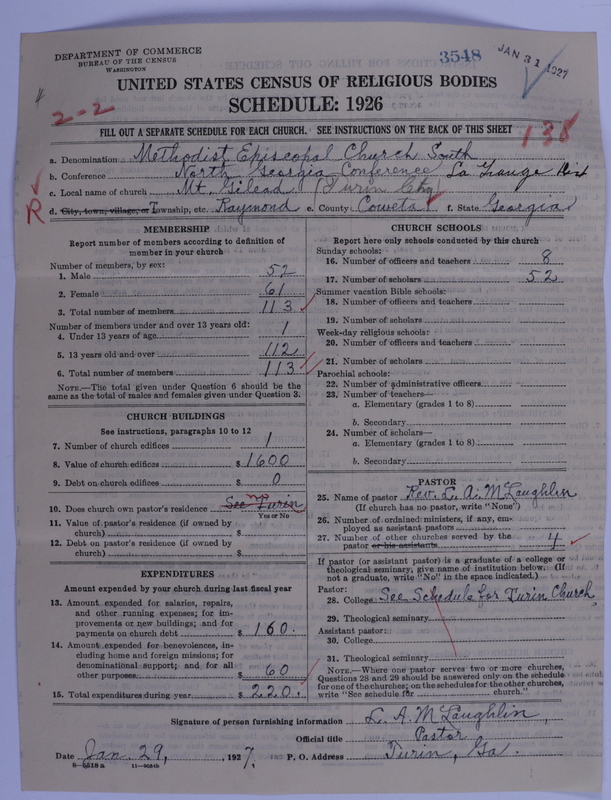 DEPARTMENT OF COMMERCE
BUREAU OF THE CENSUS
WASHINGTON
3548
JAN 31 1927
UNITED STATES CENSUS OF RELIGIOUS BODIES
SCHEDULE: 1926
2-2
138
FILL OUT A SEPARATE SCHEDULE FOR EACH CHURCH. SEE INSTRUCTIONS ON THE BACK OF THIS SHEET
a. Denomination Methodist Episcopal Church South
b. Conference North Georgia Conference La Grange Dist
c. Local name of church Mt. Gilead (Turin Chg)
R
d. City, town, village, or Township, etc. Raymond e. County Coweta f. State Georgia
MEMBERSHIP
Report number of members according to definition of
member in your church
Number of members, by sex:
1. Male 52
2. Female 61
3. Total number of members 113
Number of members under and over 13 years old:
4. Under 13 years of age 1
5. 13 years old and over 112
6. Total number of members 113
NOTE.—The total given under Question 6 should be
same as the total of males and females given under Question 3.
CHURCH BUILDINGS
See instructions, paragraphs 10 to 12
7. Number of church edifices 1
8. Value of church edifices $1600
9. Debt on church edifices $ 0
10. Does church own pastor's residence See Turin no
Yes or No
11. Value of pastor's residence (if owned by
church) $
12. Debt on pastor's residence (if owned by
church) $
EXPENDITURES
Amount expended by your church during last fiscal year
13. Amount expended for salaries, repairs,
and other running expenses; for im-
provements or new buildings; and for
payments on church debt $160.
14. Amount expended for benevolences, in-
cluding home and foreign missions; for
denominational support; and for all
other purposes $ 60
15. Total expenditures during year $220.
CHURCH SCHOOLS
Report here only schools conducted by this church
Sunday schools:
16. Number of officers and teachers 8
17. Number of scholars 52
Summer vacation Bible schools:
18. Number of officers and teachers
19. Number of scholars
Week-day religious schools:
20. Number of officers and teachers
21. Number of scholars
Parochial schools:
22. Number of administrative officers
23. Number of teachers—
a. Elementary (grades 1 to 8)
b. Secondary
24. Number of scholars—
a. Elementary (grades 1 to 8)
b. Secondary
PASTOR
25. Name of pastor Rev. L. A. McLaughlin
(If church has no pastor, write "None")
26. Number of ordained ministers, if any, em-
ployed as assistant pastors
27. Number of other churches served by the
pastor or his assistants 4
If pastor (or assistant pastor) is a graduate of a college or
theological seminary, give name of institution below. (If
not a graduate, write "No" in the space indicated.)
Pastor:
28. College See Schedule for Turin Church
29. Theological seminary
Assistant pastor:
30. College
31. Theological seminary
NOTE.—Where one pastor serves two or more churches,
Questions 28 and 29 should be answered only on the schedule
for one of the churches; on the schedules for the other churches,
write "See schedule for church."
Signature of person furnishing information L. A. McLaughlin,
Official title Pastor
Date Jan. 29, 1927, P. O. Address Turin, Ga.